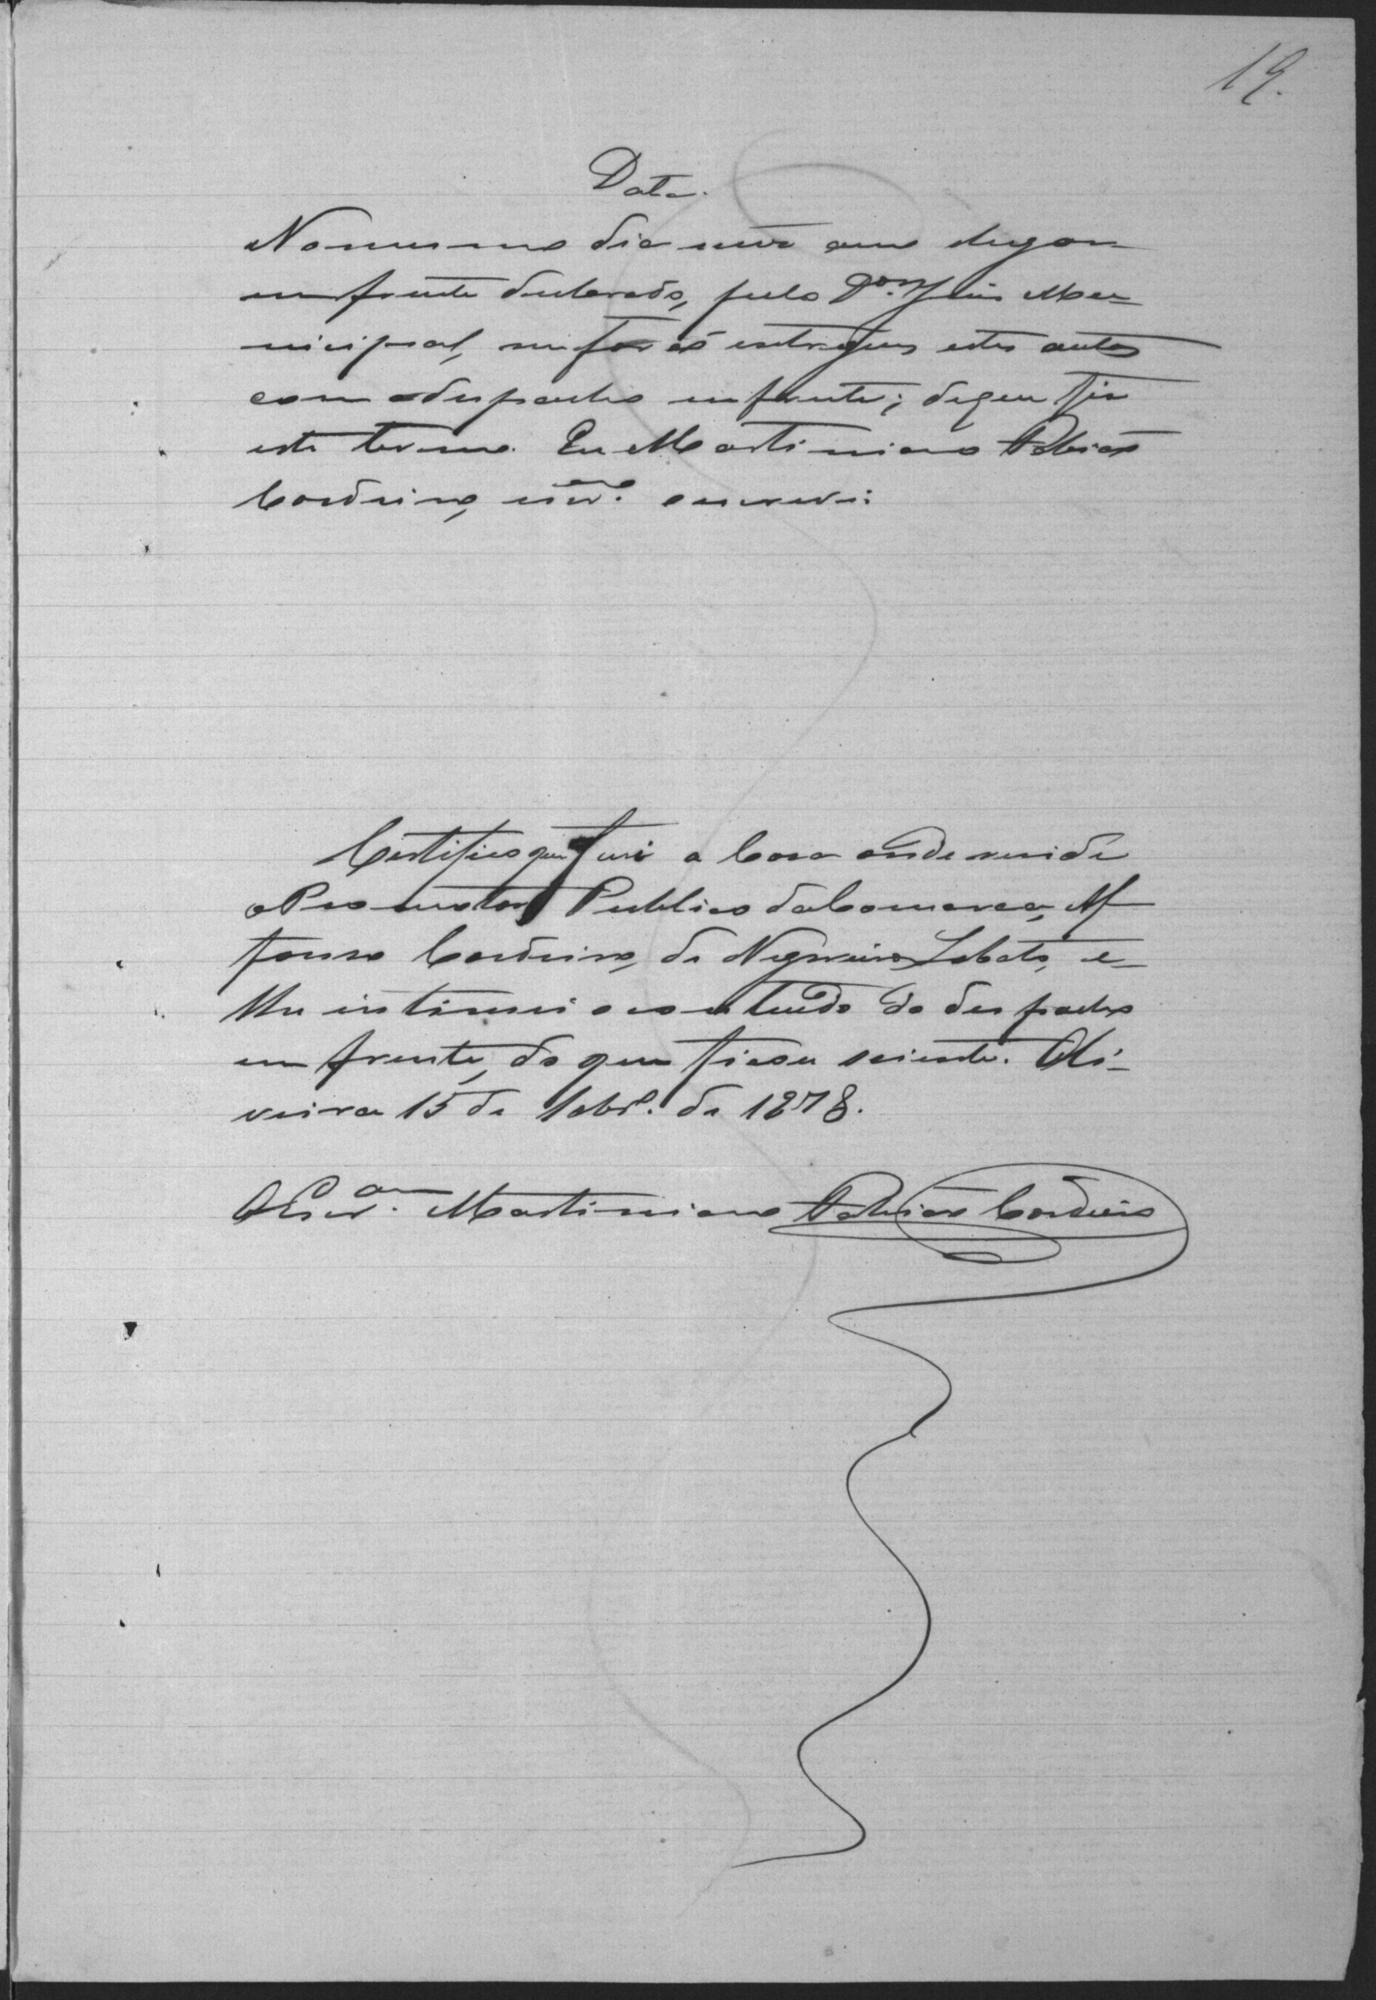 19.
Data.
No mesmo dia mez anno e lugar
em frente declarado, pelo Dor. Juis Mu-
nicipal, me forão entregues estes autos
com o despacho em frente; de que fiz
este termo. Eu Martiniano
Cordeiro, escram. o escrevi:
Certifico que fui a Casa onde reside
o Promotor Publico da Comarca, Af-
fonso Cordeiro de Negreiros Lobato, e
lhe intimei o conteudo do despacho
em frente, do que ficou sciente. Oli-
veira 15 de de 1878.
O Escram. Martiniano Cordeiro